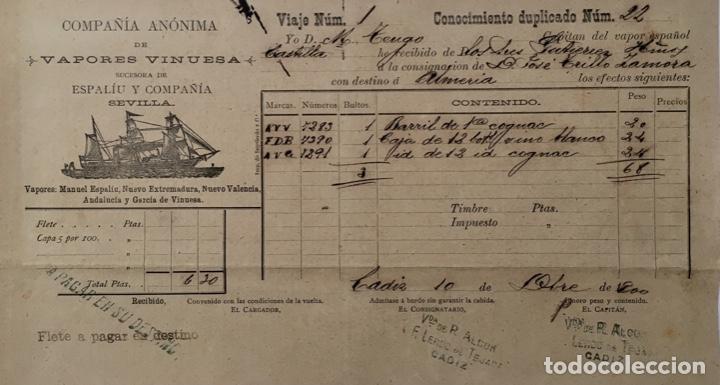 COMPAÑÍA ANÓNIMA
DE
VAPORES VINUESA
SUCESORA DE
ESPALÍU Y COMPAÑÍA
SEVILLA.
Vapores: Manuel Espaliu, Nuevo Extremadura, Nuevo Valencia,
Andalucía y García de Vinuesa.
Viaje Núm. 1 Conocimiento duplicado Núm. 22
Yo D. M. Tengo Capitan del vapor español
Castilla he recibido de los Sres Gutierrez Hnos
a la consignacion de D. José Trillo Zamora
con destino á Almeria los efectos siguientes:
Marcas. Números Bultos. CONTENIDO. Peso Precios
7283 1 Barril de cognac 20
FDB 7390 1 Caja de 12 bot/ vino blanco 24
1291 1 id de 12 id cognac 24
3 68
Flete Ptas.
Capa 5 por 100. "
Total Ptas. 6 30
Timbre Ptas.
Impuesto "
Cadiz 10 de Dbre de 1900
Recibido, Convenido con las condiciones de la vuelta. Admítase á bordo sin garantir la cabida. Ignoro peso y contenido.
EL CARGADOR, EL CONSIGNATARIO, EL CAPITÁN,
A PAGAR EN SU DESTINO.
Flete a pagar en destino
Vda DE R. ALCON
F. LERDO DE TEJADA
CADIZ
Vda DE R. ALCON
F. LERDO DE TEJADA
CADIZ
todocoleccion